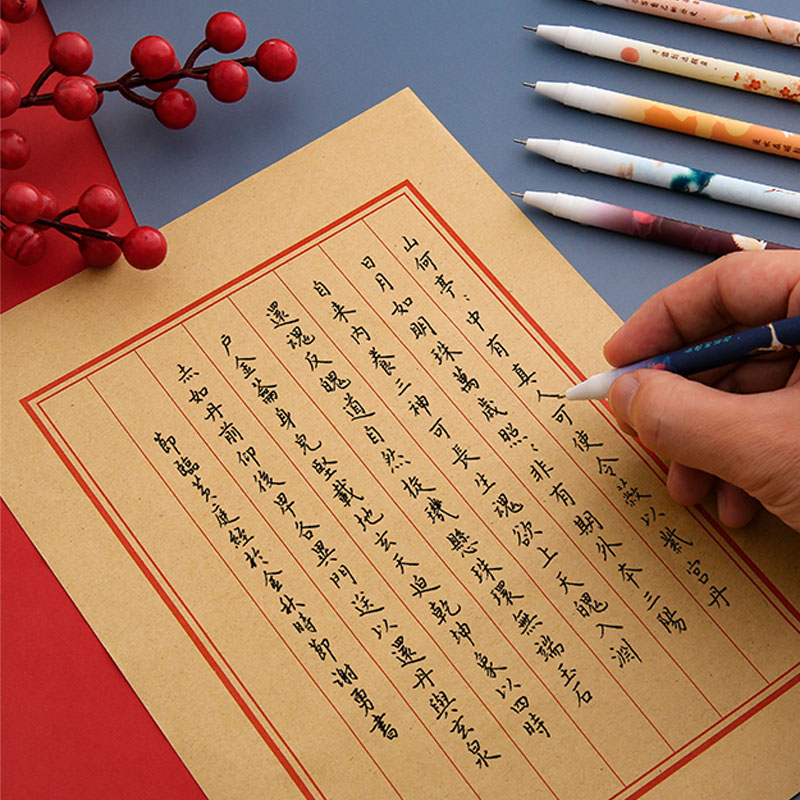 山何亭〻中有真人可使令蔽以紫宮丹
日月如明珠萬歲照〻非有期外本三陽
自来內養三神可長生魂欲上天魄入淵
還魂反魄道自然旋璣懸珠環無端玉石
戶金籥身兒堅載地玄天迫乾坤象以四時
赤如丹前仰後卑各異門送以還丹與玄泉
節臨黃庭經於金秋時節謝勇書